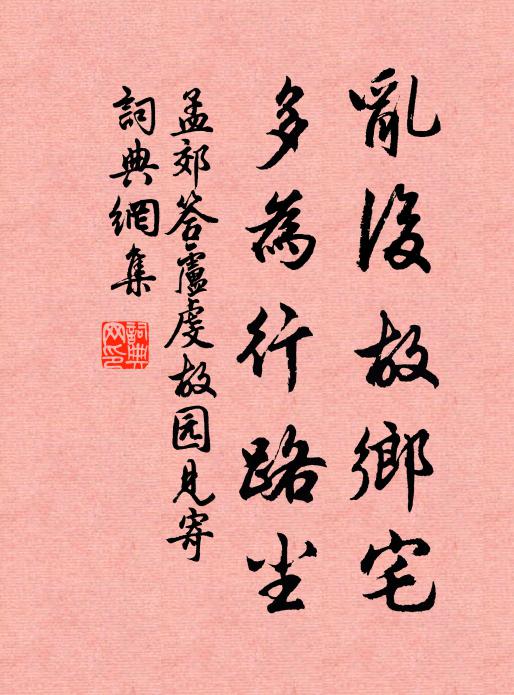 亂後故鄉宅
多為行路尘
孟郊答盧虔故园見寄
詞典網集
詞典网印